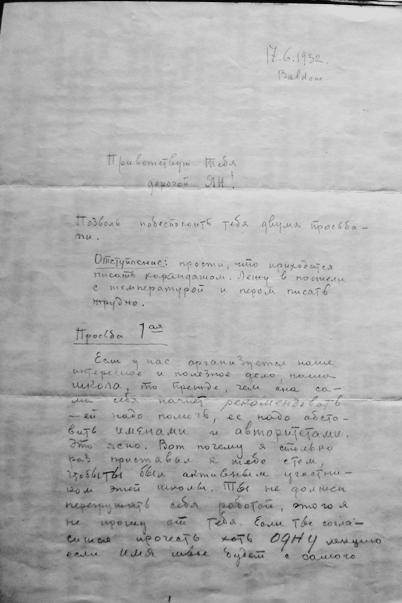 17.6.1932.
Baldone
Приветствую Тебя
дорогой ЯН!
Позволь побеспокоить тебя двумя просьба-
ми.
Отступление: прости, что приходится
писать карандашом. Лежу в постели
с температурой и пером писать
трудно.
Просьба 1ая
Если у нас организуется наше
интересное и полезное дело, наша
школа, то прежде, чем она са-
ма себя начнет рекомендовать
— ей надо помочь, ее надо обста-
вить именами и авторитетами.
Это ясно. Вот почему я столько
раз приставал к тебе с тем
чтобы ты был активным участни-
ком этой школы. Ты не должен
перегружать себя работой, этого я
не прошу от тебя. Если ты согла-
сишься прочесть хоть ОДНУ лекцию
если имя твое будет с самого